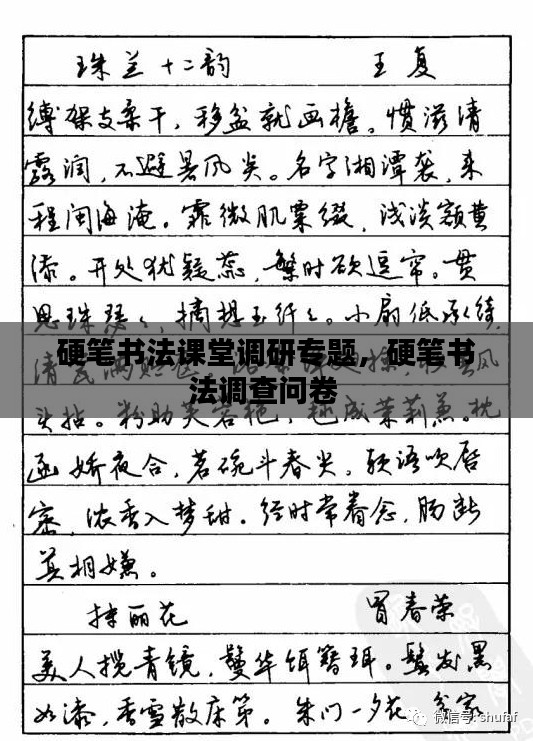 珠兰十二韵 王复
缚架支柔干，移盆就画檐。惯滋清
露润，不避暑风炎。名字湘潭袭，来
程闽海淹。霏微肌粟缀，浅淡额黄
添。开处犹疑蕊，繁时欲逗帘。贯
思珠琴々，摘想玉纤々。小扇低承绩
硬笔书法课堂调研专题，硬笔书
法调查问卷
头拈。粉助芙蓉艳，趣成茉莉兼。枕
函娇夜合，茗碗斗春尖，软语吹唇
密，浓香入梦甜。经时常眷念，肠断
莫相嫌。
抹丽花 冒春荣
美人揽青镜，鬓华饵簪珥。鬓发黑
如漆，香雪散床第。朱门一夕花
微信号: shufaf